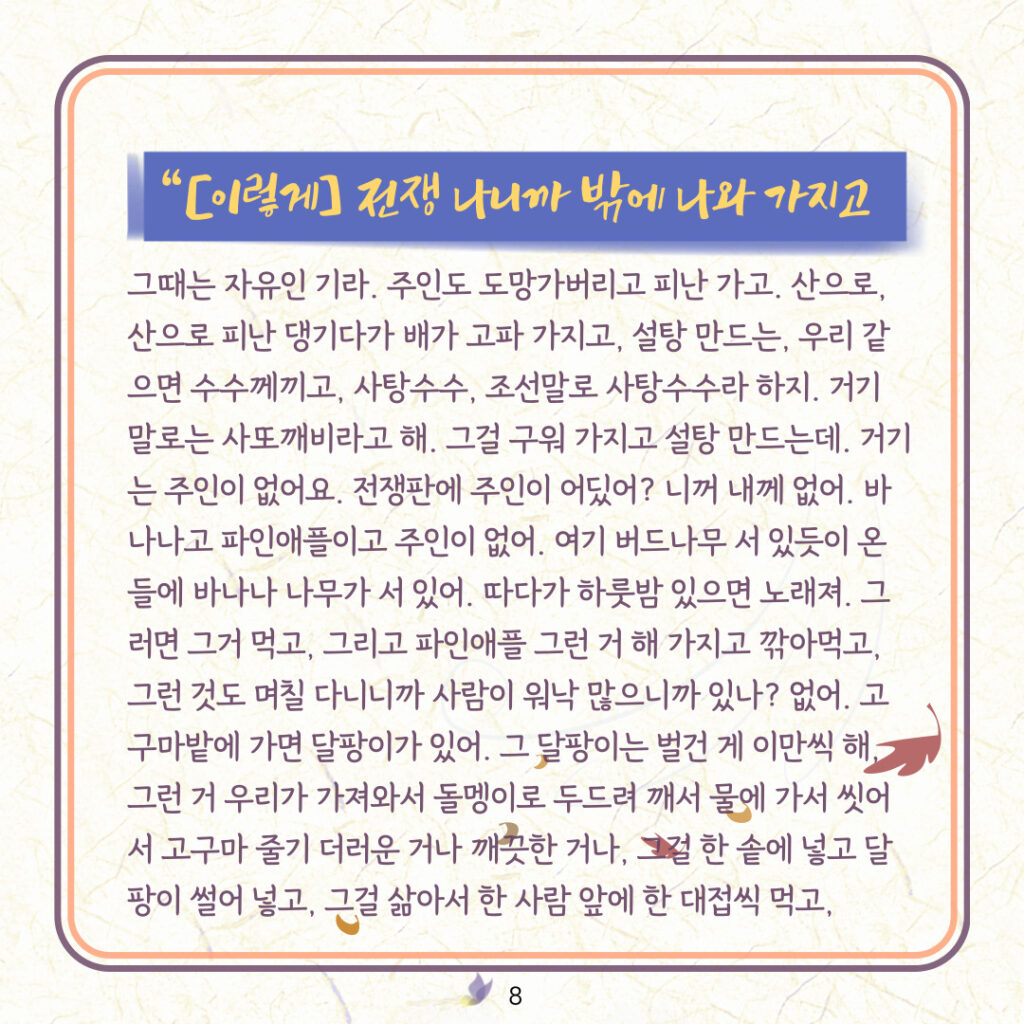 “[이렇게] 전쟁 나니까 밖에 나와 가지고
그때는 자유인 기라. 주인도 도망가버리고 피난 가고. 산으로,
산으로 피난 댕기다가 배가 고파 가지고, 설탕 만드는, 우리 같
으면 수수께끼고, 사탕수수, 조선말로 사탕수수라 하지. 거기
말로는 사또깨비라고 해. 그걸 구워 가지고 설탕 만드는데. 거기
는 주인이 없어요. 전쟁판에 주인이 어딨어? 니꺼 내께 없어. 바
나나고 파인애플이고 주인이 없어. 여기 버드나무 서 있듯이 온
들에 바나나 나무가 서 있어. 따다가 하룻밤 있으면 노래져. 그
러면 그거 먹고, 그리고 파인애플 그런 거 해 가지고 깎아먹고,
그런 것도 며칠 다니니까 사람이 워낙 많으니까 있나? 없어. 고
구마밭에 가면 달팡이가 있어. 그 달팡이는 벌건 게 이만씩 해,
그런 거 우리가 가져와서 돌멩이로 두드려 깨서 물에 가서 씻어
서 고구마 줄기 더러운 거나 깨끗한 거나, 그걸 한 솥에 넣고 달
팡이 썰어 넣고, 그걸 삶아서 한 사람 앞에 한 대접씩 먹고,
8